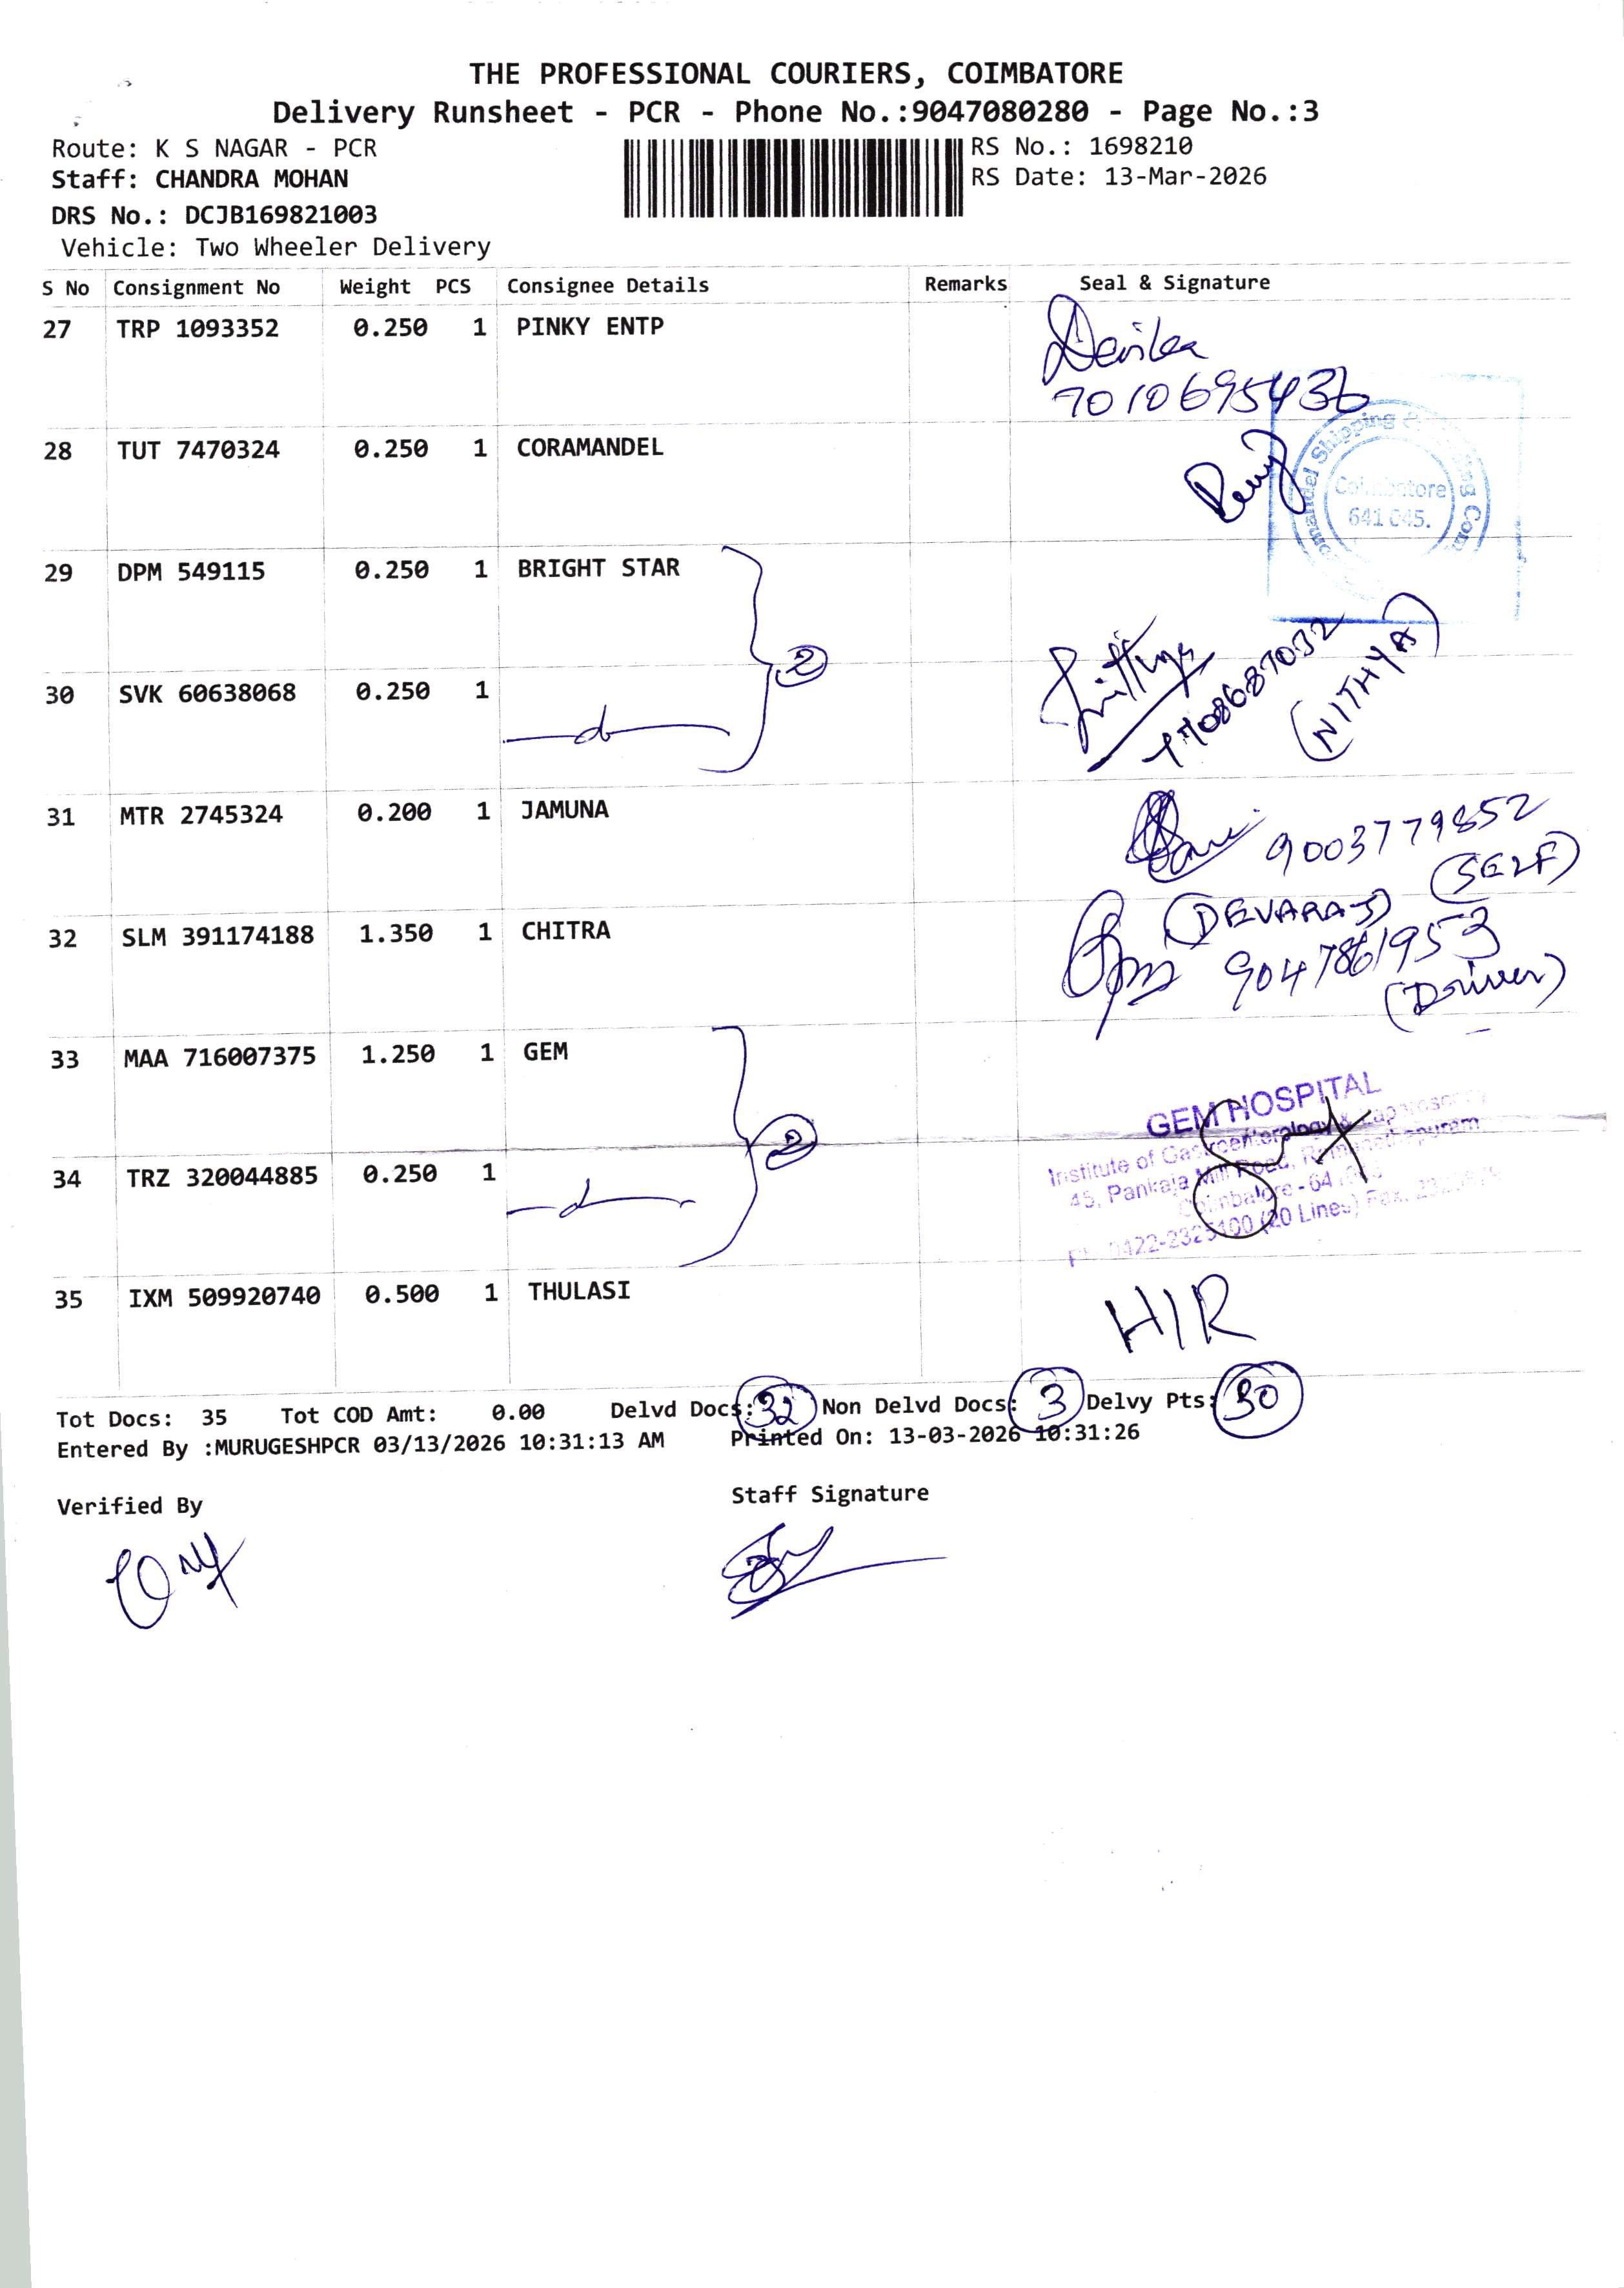 THE PROFESSIONAL COURIERS, COIMBATORE
Delivery Runsheet - PCR - Phone No.:9047080280 - Page No.:3
Route: K S NAGAR - PCR
RS No.: 1698210
Staff: CHANDRA MOHAN
RS Date: 13-Mar-2026
DRS No.: DCJB169821003
Vehicle: Two Wheeler Delivery
S No Consignment No Weight PCS Consignee Details Remarks Seal & Signature
27 TRP 1093352 0.250 1 PINKY ENTP
7010695436
28 TUT 7470324 0.250 1 CORAMANDEL
Shipping
Coimbatore
641 045.
29 DPM 549115 0.250 1 BRIGHT STAR
2
30 SVK 60638068 0.250 1
7708687032
(NITHYA)
31 MTR 2745324 0.200 1 JAMUNA
9003779852
(SELF)
32 SLM 391174188 1.350 1 CHITRA
(DEVARAJ)
9047861953
(Driver)
33 MAA 716007375 1.250 1 GEM
2
GEM HOSPITAL
Institute of Gastroenterology &
45, Pankaja Mill Road, Ramanathapuram
Coimbatore - 64
0422-2325100 (20 Lines) Fax.
34 TRZ 320044885 0.250 1
35 IXM 509920740 0.500 1 THULASI
H/R
Tot Docs: 35 Tot COD Amt: 0.00 Delvd Docs: 32 Non Delvd Docs: 3 Delvy Pts: 30
Entered By :MURUGESHPCR 03/13/2026 10:31:13 AM Printed On: 13-03-2026 10:31:26
Verified By
Staff Signature